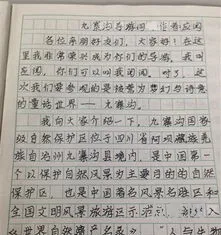 九寨沟导游词
各位亲朋好友们，大家好！在这
里我非常荣兴成为你们的导游，我叫
你们可以叫我 对了，这
次我们要参观的是被誉为梦幻与诗意
的童话世界——九寨沟。
我向大家介绍一下，九寨沟国家
级自然保护区位于四川省阿坝藏族羌
族自治州九寨沟县境内，是中国第一
个以保护自然风景为主要目的的自然
保护区，也是中国著名风景名胜区和
全国文明风景旅游区示范点，入
《世界自然遗产名录》 《人与生物